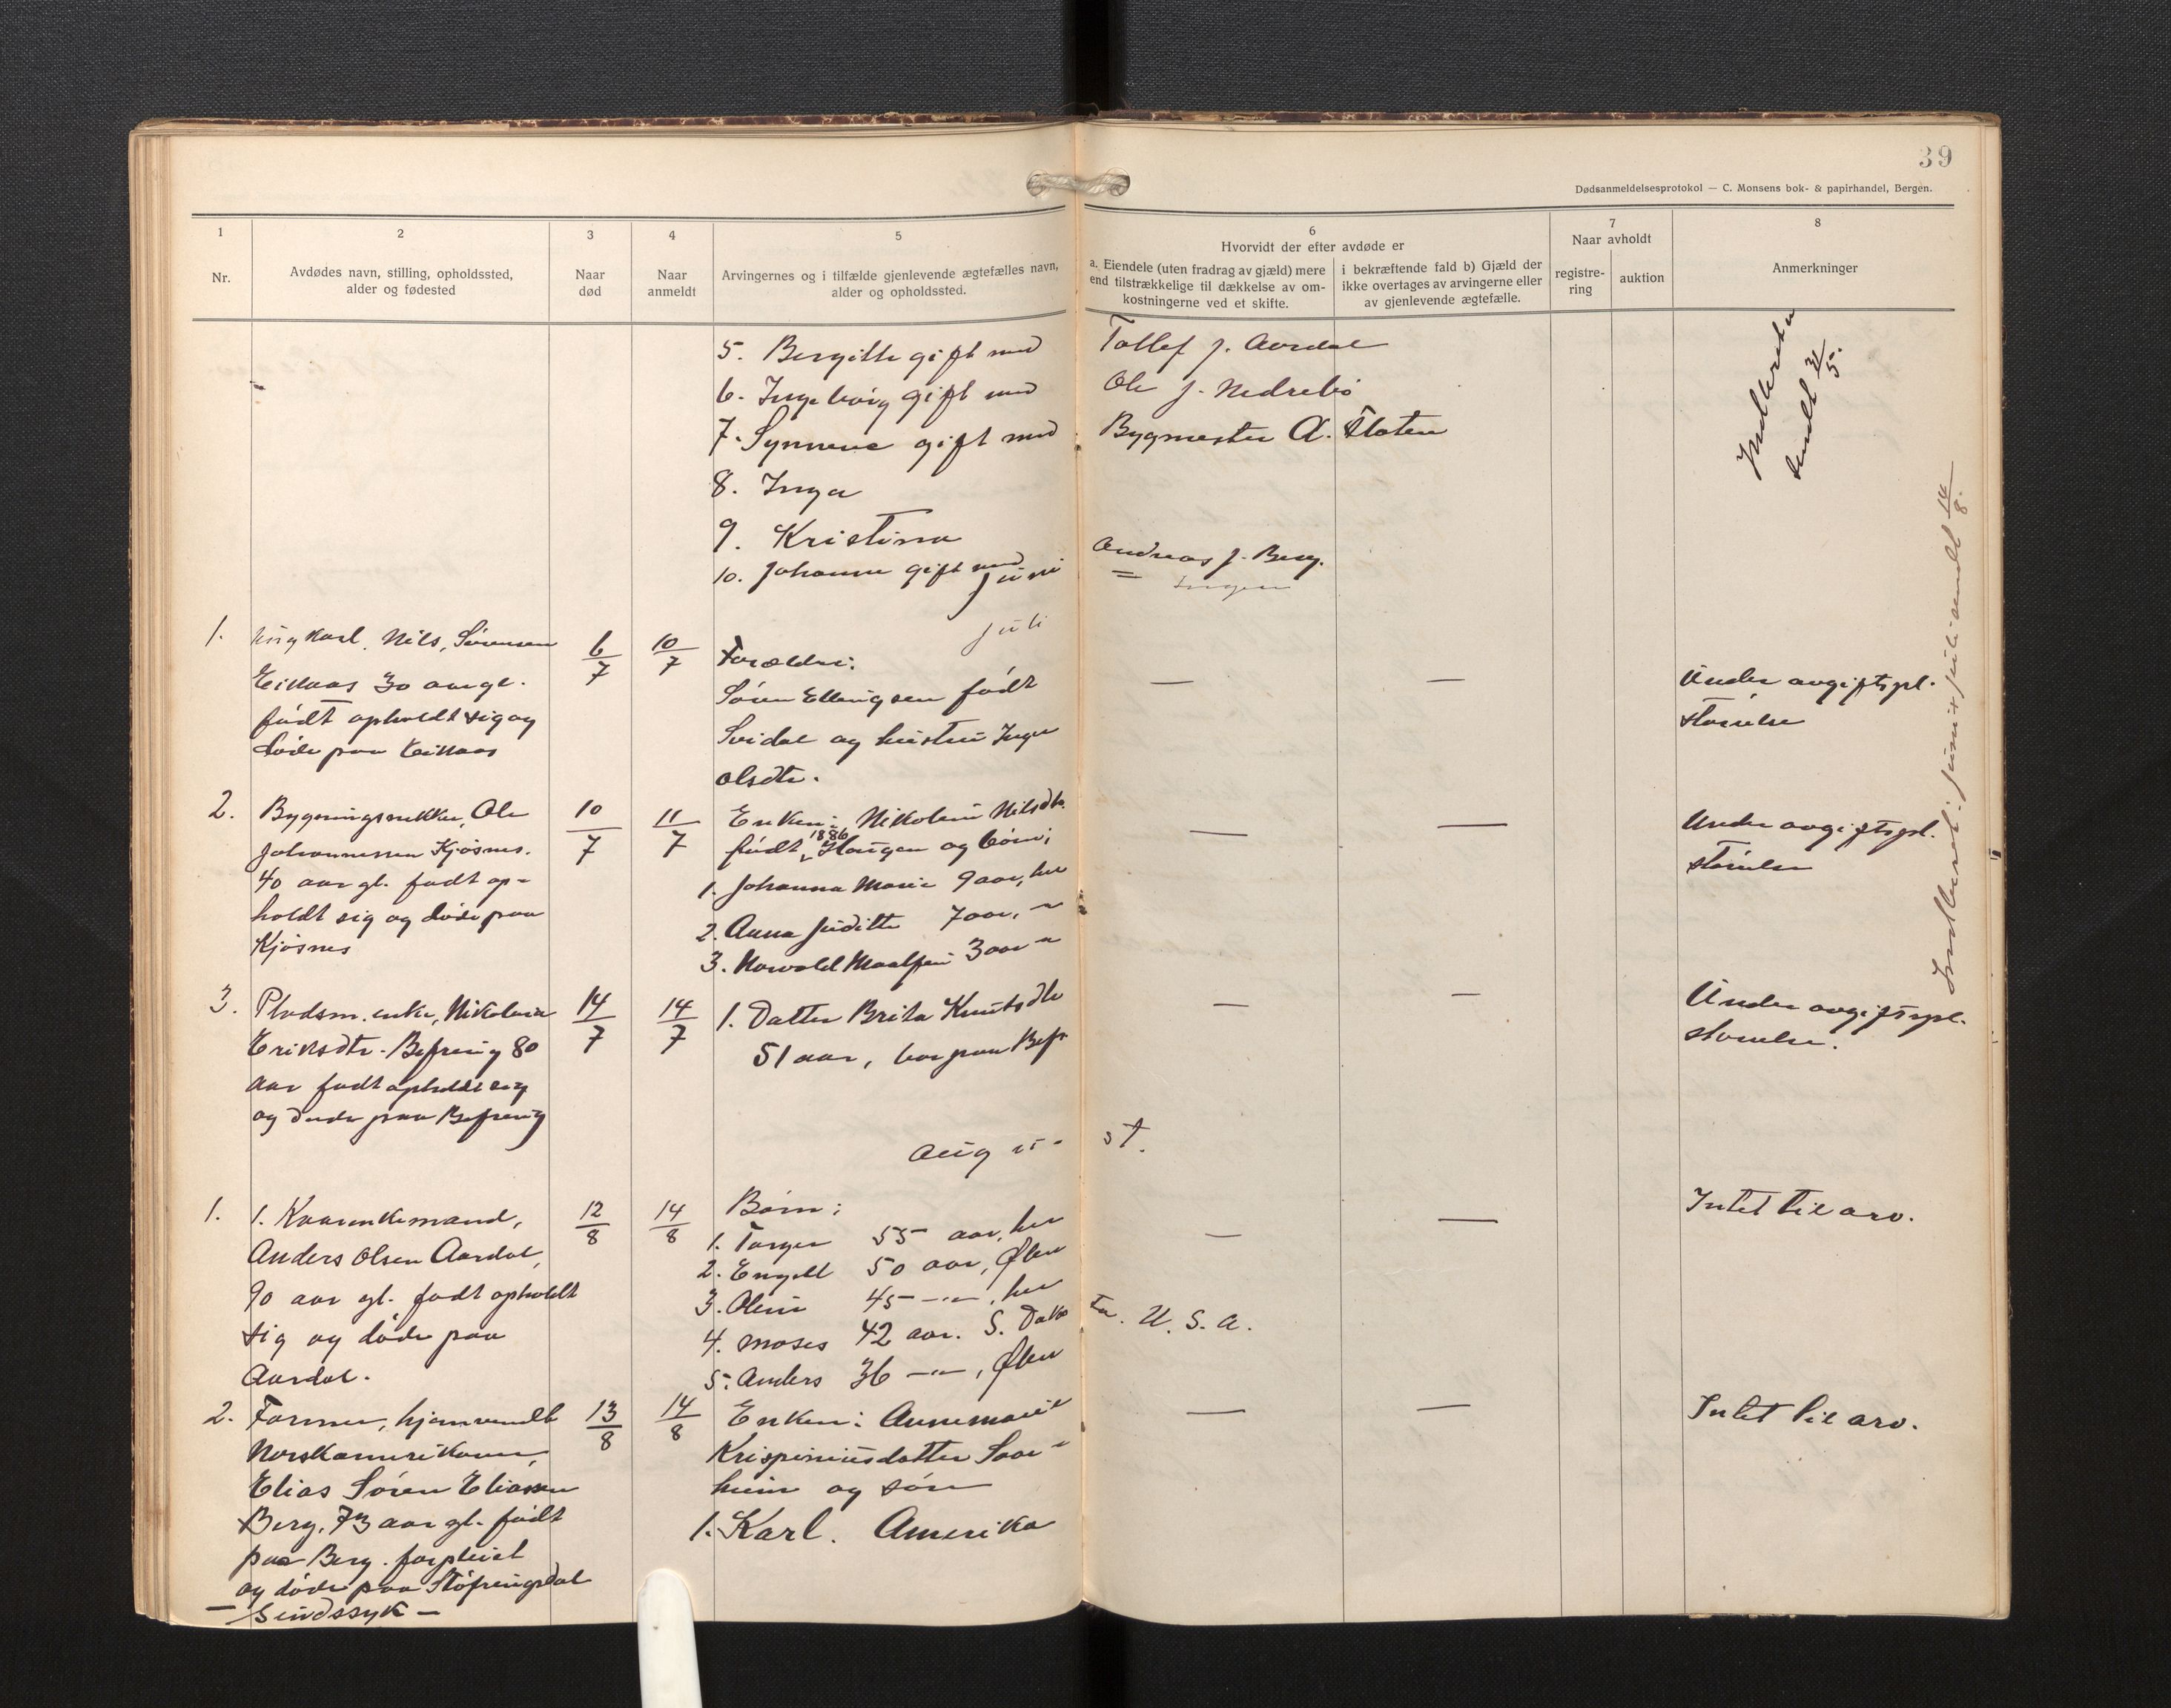 39
Dødsanmeldelsesprotokol — C. Monsens bok- & papirhandel, Bergen.
1
Nr.
2
Avdødes navn, stilling, opholdssted,
alder og fødested
3
Naar
død
4
Naar
anmeldt
5
Arvingernes og i tilfælde gjenlevende ægtefælles navn,
alder og opholdssted.
6
Hvorvidt der efter avdøde er
a. Eiendele (uten fradrag av gjæld) mere
end tilstrækkelige til dækkelse av om-
kostningerne ved et skifte.
i bekræftende fald b) Gjæld der
ikke overtages av arvingerne eller
av gjenlevende ægtefælle.
7
Naar avholdt
registre-
ring
auktion
8
Anmerkninger
5. Bergitte gift med Tollef J. Aardal
6. Ingeborg gift med Ole J. Nedrebø
7. Synneve gift med Bygmester A. Flaten
8. Inga
9. Kristina
10. Johanne gift med Andreas J. Berg.
Indberetn
sendt 31/5.
Juni
= Ingen
Juli
1. Ungkarl. Nils, Sørensen
Eikaas 30 aar gl.
født opholdt sig og
døde paa Eikaas
6/7
10/7
Forældre:
Søren Ellingsen født
Svidal og hustru Inger
Olsdtr.
—
—
Under avgiftspl.
størrelse
2. Bygningssnekker, Ole
Johannessen Kjøsnes.
40 aar gl. født op-
holdt sig og døde paa
Kjøsnes
10/7
11/7
Enken: Nikoline Nilsdtr.
født 1886 Haugen og børn:
1. Johanna Marie 9 aar, her
2. Anna Juditte 7 aar, "
3. Norvald Maalfrid 3 aar "
—
—
Under avgiftspl.
størrelse
3. Pladsm. enke, Nikolina
Eriksdtr. Befring 80
aar født opholdt sig
og døde paa Befring
14/7
14/7
1. Datter Brita Knutsdtr
51 aar, bor paa Befr
—
—
Under avgiftspl.
størrelse.
Indberet. juni + juli sendt 14/8.
Augu- st.
1. 1. Kaarenkemand,
Anders Olsen Aardal,
90 aar gl. født opholdt
sig og døde paa
Aardal.
12/8
14/8
Børn:
1. Torger 55 aar, her
2. Engell 50 aar, Ølen
3. Oline 45 —"—, her
4. Moses 42 aar. S. Dako ta. U. S. A.
5. Anders 36 —"—, Ølen
—
—
Intet til arv.
2. Farmer, hjemvendt
Norskamerikaner,
Elias Søren Eliassen
Berg, 73 aar gl. født
paa Berg. forpleiet
og døde paa Støfringsdal
— Sindssyk —
13/8
14/8
Enken: Annemarie
Krispiniusdatter Saar-
heim og søn
1. Karl. Amerika
—
—
Intet til arv.